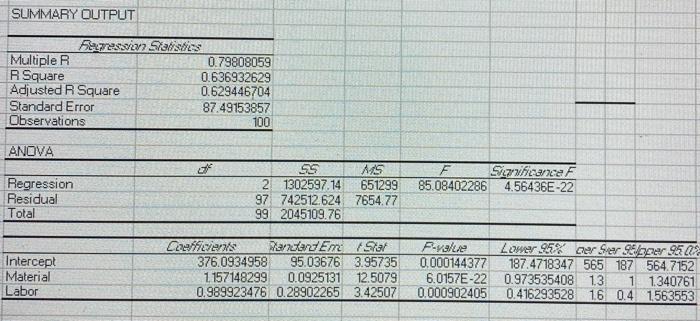 SUMMARY OUTPUT
Regression Statistics
Multiple R 0.79808059
R Square 0.636932629
Adjusted R Square 0.629446704
Standard Error 87.49153857
Observations 100
ANOVA
df SS MS F Significance F
Regression 2 1302597.14 651299 85.08402286 4.56436E-22
Residual 97 742512.624 7654.77
Total 99 2045109.76
Coefficients Standard Erro t Stat P-value Lower 95% per 95 er 95 pper 95.0%
Intercept 376.0934958 95.03676 3.95735 0.000144377 187.4718347 565 187 564.7152
Material 1.157148299 0.0925131 12.5079 6.0157E-22 0.973535408 1.3 1 1.340761
Labor 0.989923476 0.28902265 3.42507 0.000902405 0.416293528 1.6 0.4 1.563553